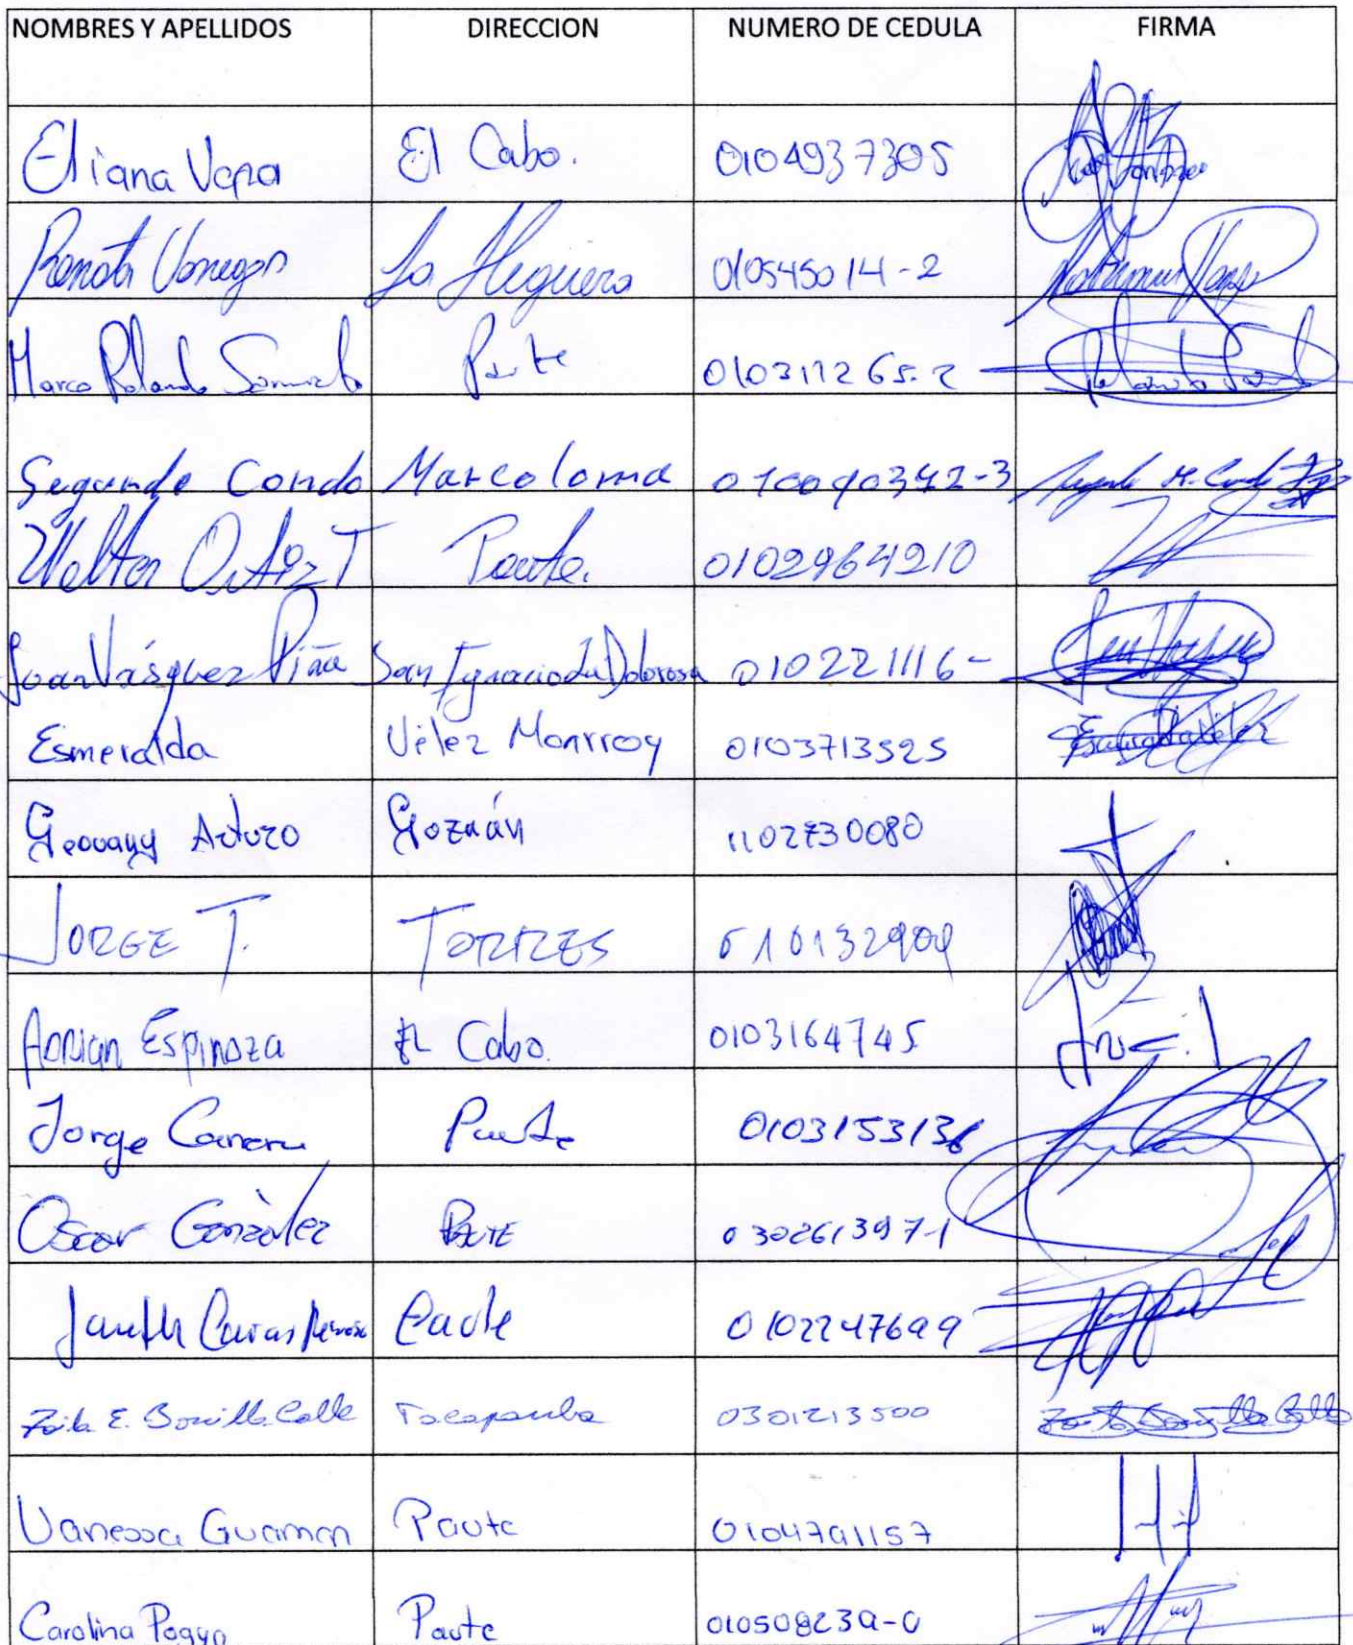 NOMBRES Y APELLIDOS DIRECCION NUMERO DE CEDULA FIRMA
Eliana Vera El Cabo. 0104937305
Renata Vanegas La Higuera 010545014-2
Marco Rolando Sarmiento Paute 010311265-2
Segundo Condo Marcoloma
Walter Ortiz T Paute. 0102964210
Juan Vásquez Piña San Ignacio La Dolorosa 010221116-
Esmeralda Vélez Monrroy 0103713525 Esmeralda Vélez
Geovany Arturo Guzmán 1102730080
JORGE T. TORRES
ADRIAN ESPINOZA EL Cabo. 0103164745
Jorge Paute 0103153136
Oscar Gonzàlez PAUTE 030261397-1
Janeth Caras Paute 0102247699
Zoila E. Bonilla Calle 0301213500 Zoila Bonilla Calle
Vanessa Guaman Paute 0104791157
Carolina Paute 010508239-0